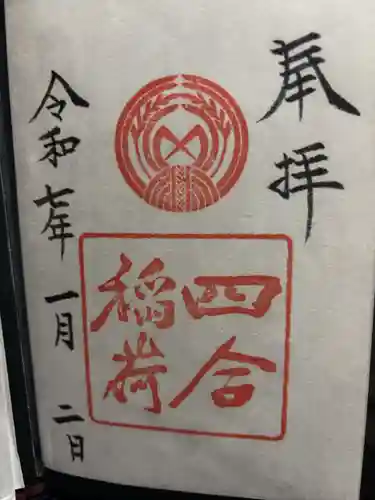 奉拝
四合
稲荷
令和七年一月二日